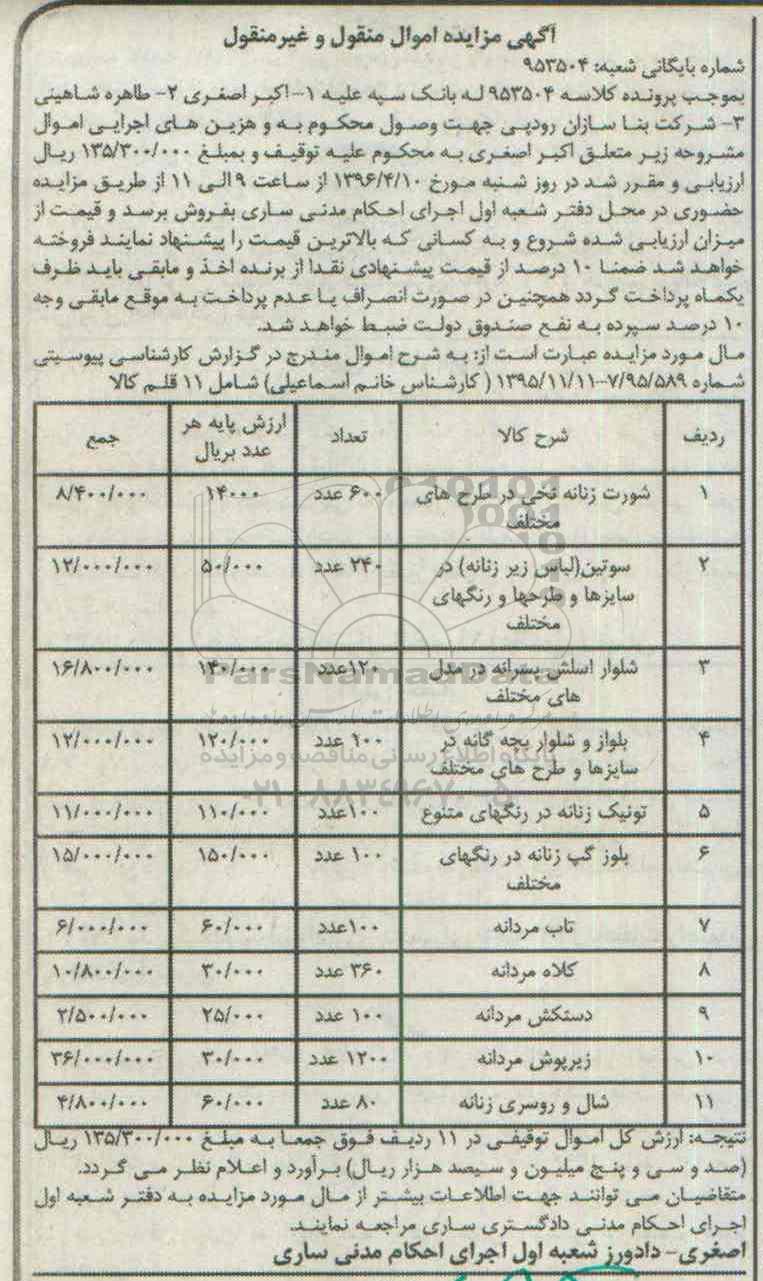 آگهی مزایده اموال منقول و غیرمنقول
شماره بایگانی شعبه: ۹۵۳۵۰۴
بموجب پرونده کلاسه ۹۵۳۵۰۴ له بانک سپه علیه ۱- اکبر اصغری ۲- طاهره شاهینی
۳- شرکت بنا سازان رودپی جهت وصول محکوم به و هزین های اجرایی اموال
مشروحه زیر متعلق اکبر اصغری به محکوم علیه توقیف و بمبلغ ۱۳۵/۳۰۰/۰۰۰ ریال
ارزیابی و مقرر شد در روز شنبه مورخ ۱۳۹۶/۴/۱۰ از ساعت ۹ الی ۱۱ از طریق مزایده
حضوری در محل دفتر شعبه اول اجرای احکام مدنی ساری بفروش برسد و قیمت از
میزان ارزیابی شده شروع و به کسانی که بالاترین قیمت را پیشنهاد نمایند فروخته
خواهد شد ضمنا ۱۰ درصد از قیمت پیشنهادی نقدا از برنده اخذ و مابقی باید ظرف
یکماه پرداخت گردد همچنین در صورت انصراف یا عدم پرداخت به موقع مابقی وجه
۱۰ درصد سپرده به نفع صندوق دولت ضبط خواهد شد.
مال مورد مزایده عبارت است از: به شرح اموال مندرج در گزارش کارشناسی پیوسیتی
شماره ۷/۹۵/۵۸۹-۱۳۹۵/۱۱/۱۱ ( کارشناس خانم اسماعیلی) شامل ۱۱ قلم کالا
ردیف شرح کالا تعداد ارزش پایه هر عدد بریال جمع
۱ شورت زنانه نخی در طرح های مختلف ۶۰۰ عدد ۱۴۰۰۰ ۸/۴۰۰/۰۰۰
۲ سوتین(لباس زیر زنانه) در سایزها و طرحها و رنگهای مختلف ۲۴۰ عدد ۵۰/۰۰۰ ۱۲/۰۰۰/۰۰۰
۳ شلوار اسلش پسرانه در مدل های مختلف ۱۲۰عدد ۱۴۰/۰۰۰ ۱۶/۸۰۰/۰۰۰
۴ بلواز و شلوار بچه گانه در سایزها و طرح های مختلف ۱۰۰ عدد ۱۲۰/۰۰۰ ۱۲/۰۰۰/۰۰۰
۵ تونیک زنانه در رنگهای متنوع ۱۰۰عدد ۱۱۰/۰۰۰ ۱۱/۰۰۰/۰۰۰
۶ بلوز گپ زنانه در رنگهای مختلف ۱۰۰ عدد ۱۵۰/۰۰۰ ۱۵/۰۰۰/۰۰۰
۷ تاب مردانه ۱۰۰عدد ۶۰/۰۰۰ ۶/۰۰۰/۰۰۰
۸ کلاه مردانه ۳۶۰ عدد ۳۰/۰۰۰ ۱۰/۸۰۰/۰۰۰
۹ دستکش مردانه ۱۰۰ عدد ۲۵/۰۰۰ ۲/۵۰۰/۰۰۰
۱۰ زیرپوش مردانه ۱۲۰۰ عدد ۳۰/۰۰۰ ۳۶/۰۰۰/۰۰۰
۱۱ شال و روسری زنانه ۸۰ عدد ۶۰/۰۰۰ ۴/۸۰۰/۰۰۰
نتیجه: ارزش کل اموال توقیفی در ۱۱ ردیف فوق جمعا به مبلغ ۱۳۵/۳۰۰/۰۰۰ ریال
(صد و سی و پنج میلیون و سیصد هزار ریال) برآورد و اعلام نظر می گردد.
متقاضیان می توانند جهت اطلاعات بیشتر از مال مورد مزایده به دفتر شعبه اول
اجرای احکام مدنی دادگستری ساری مراجعه نمایند.
اصغری- دادورز شعبه اول اجرای احکام مدنی ساری
ParsNamadData
پایگاه اطلاع رسانی مناقصه و مزایده
۰۲۱-۸۸۳۴۹۶۷۰-۵